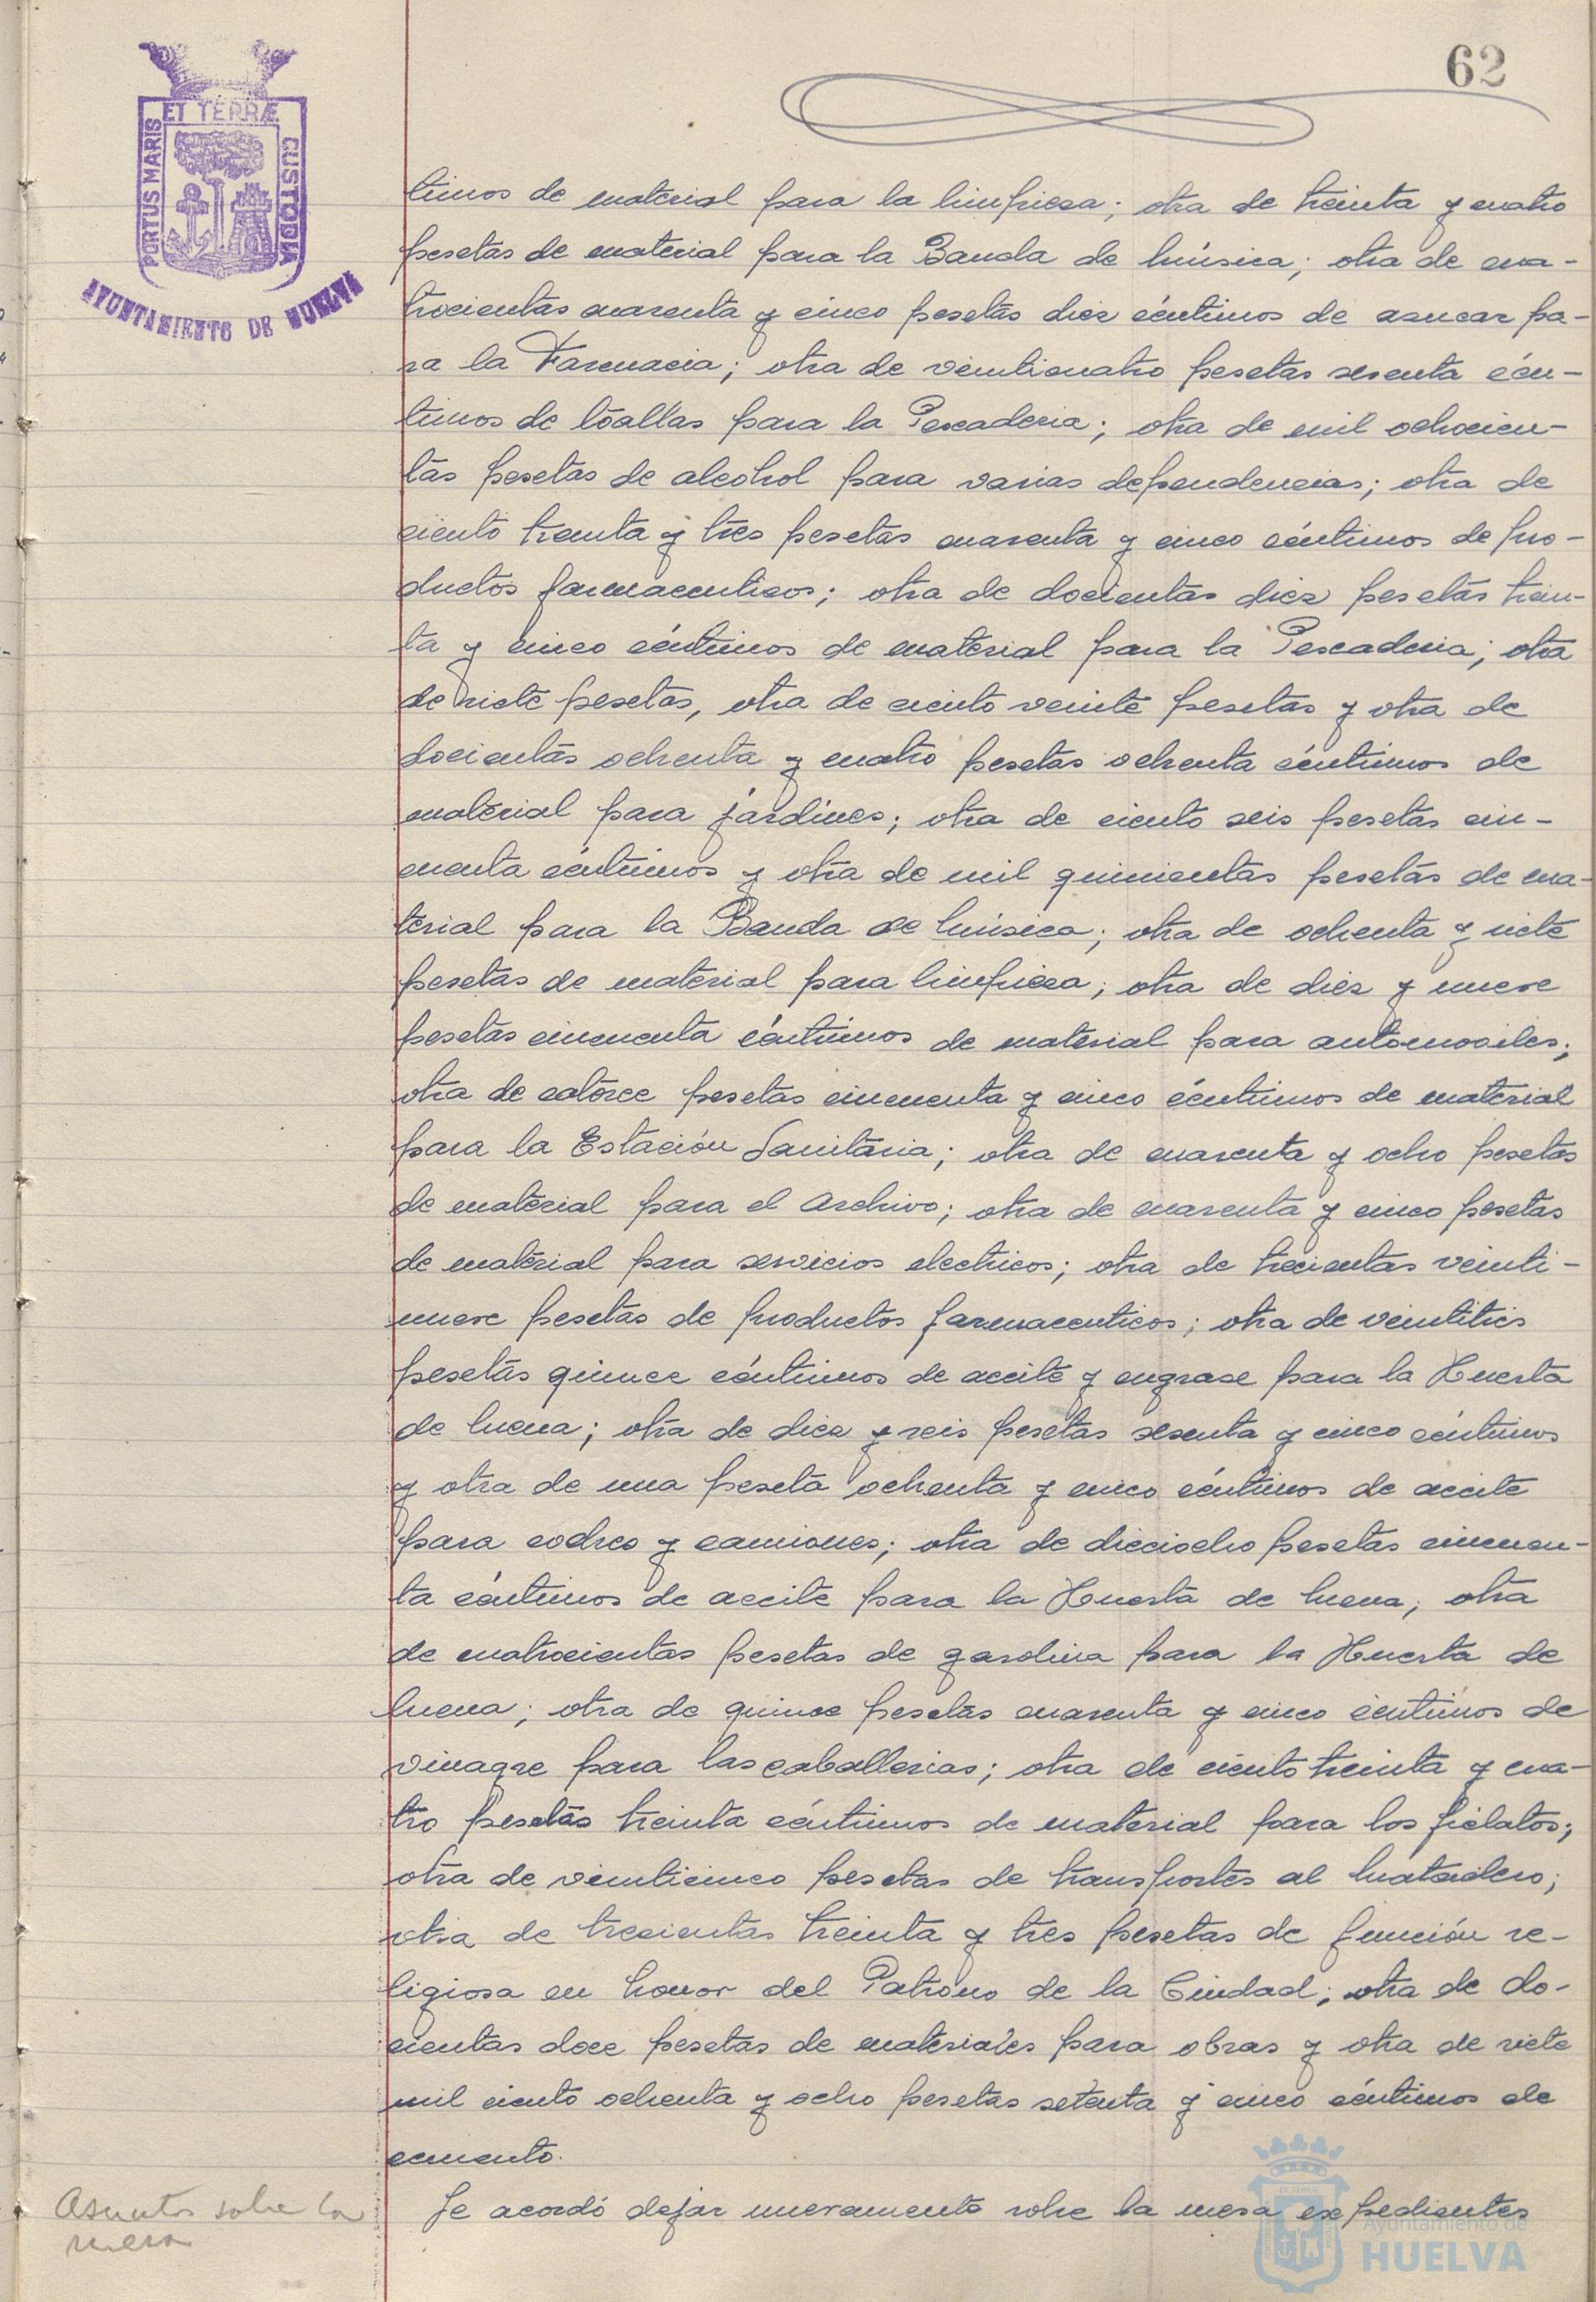 62
PORTUS MARIS ET TERRÆ CUSTODIA
AYUNTAMIENTO DE HUELVA
timos de material para la limpieza; otra de treinta y cuatro
pesetas de material para la Banda de Música; otra de cua-
trocientas cuarenta y cinco pesetas diez céntimos de azucar pa-
ra la Farmacia; otra de veinticuatro pesetas sesenta cén-
timos de toallas para la Pescaderia; otra de mil ochocien-
tas pesetas de alcohol para varias dependencias; otra de
ciento treinta y tres pesetas cuarenta y cinco céntimos de pro-
ductos farmaceuticos; otra de docientas diez pesetas trein-
ta y cinco céntimos de material para la Pescaderia; otra
de siete pesetas, otra de ciento veinte pesetas y otra de
docientas ochenta y cuatro pesetas ochenta céntimos de
material para jardines; otra de ciento seis pesetas cin-
cuenta céntimos y otra de mil quinientas pesetas de ma-
terial para la Banda de Música; otra de ochenta y siete
pesetas de material para limpieza; otra de diez y nueve
pesetas cincuenta céntimos de material para automoviles;
otra de catorce pesetas cincuenta y cinco céntimos de material
para la Estación Sanitaria; otra de cuarenta y ocho pesetas
de material para el Archivo; otra de cuarenta y cinco pesetas
de material para servicios electricos; otra de trecientas veinti-
nueve pesetas de productos farmaceuticos; otra de veintitres
pesetas quince céntimos de aceite y engrase para la Huerta
de Mena; otra de diez y seis pesetas sesenta y cinco céntimos
y otra de una peseta ochenta y cinco céntimos de aceite
para coches y camiones; otra de dieciocho pesetas cincuen-
ta céntimos de aceite para la Huerta de Mena; otra
de cuatrocientas pesetas de gasolina para la Huerta de
Mena; otra de quince pesetas cuarenta y cinco céntimos de
vinagre para las caballerias; otra de ciento treinta y cua-
tro pesetas treinta céntimos de material para los fielatos;
otra de veinticinco pesetas de transportes al Matadero;
otra de trecientas treinta y tres pesetas de función re-
ligiosa en honor del Patrono de la Ciudad; otra de do-
cientas doce pesetas de materiales para obras y otra de siete
mil ciento ochenta y ocho pesetas setenta y cinco céntimos de
cemento.
Asuntos sobre la
mesa
Se acordó dejar nuevamente sobre la mesa expedientes
Ayuntamiento de
HUELVA